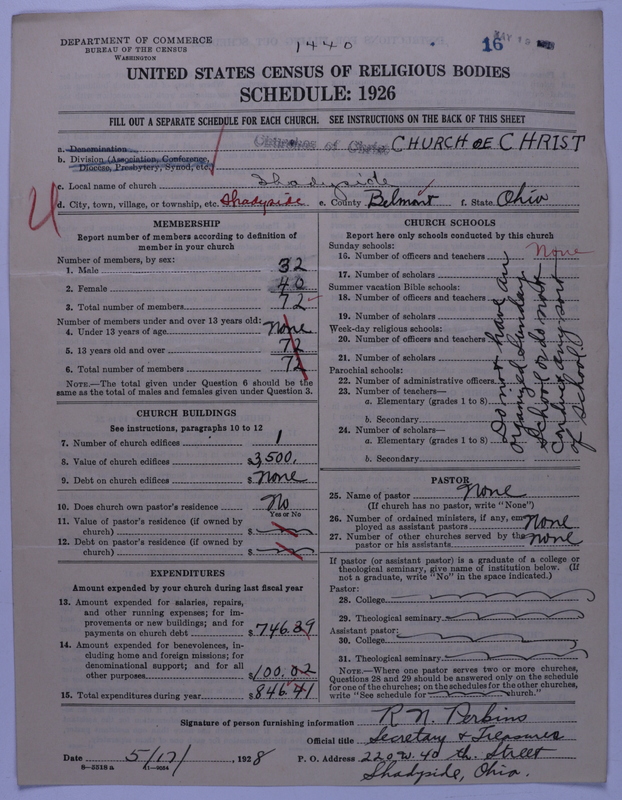 DEPARTMENT OF COMMERCE
BUREAU OF THE CENSUS
WASHINGTON
1440
16 MAY 19
UNITED STATES CENSUS OF RELIGIOUS BODIES
SCHEDULE: 1926
FILL OUT A SEPARATE SCHEDULE FOR EACH CHURCH. SEE INSTRUCTIONS ON THE BACK OF THIS SHEET
a. Denomination Churches of Christ CHURCH OF CHRIST
b. Division (Association, Conference,
Diocese, Presbytery, Synod, etc.)
c. Local name of church Shadyside
d. City, town, village, or township, etc. Shadyside e. County Belmont f. State Ohio
MEMBERSHIP
Report number of members according to definition of
member in your church
Number of members, by sex:
1. Male 32
2. Female 40
3. Total number of members 72
Number of members under and over 13 years old:
4. Under 13 years of age None
5. 13 years old and over 72
6. Total number of members 72
NOTE.—The total given under Question 6 should be the
same as the total of males and females given under Question 3.
CHURCH BUILDINGS
See instructions, paragraphs 10 to 12
7. Number of church edifices 1
8. Value of church edifices $3,500.
9. Debt on church edifices $None
10. Does church own pastor's residence No
Yes or No
11. Value of pastor's residence (if owned by
church) $
12. Debt on pastor's residence (if owned by
church) $
EXPENDITURES
Amount expended by your church during last fiscal year
13. Amount expended for salaries, repairs,
and other running expenses; for im-
provements or new buildings; and for
payments on church debt $746.39
14. Amount expended for benevolences, in-
cluding home and foreign missions; for
denominational support; and for all
other purposes $100.02
15. Total expenditures during year $846.41
CHURCH SCHOOLS
Report here only schools conducted by this church
Sunday schools:
16. Number of officers and teachers None
17. Number of scholars
Summer vacation Bible schools:
18. Number of officers and teachers
19. Number of scholars
Week-day religious schools:
20. Number of officers and teachers
21. Number of scholars
Parochial schools:
22. Number of administrative officers
23. Number of teachers—
a. Elementary (grades 1 to 8)
b. Secondary
24. Number of scholars—
a. Elementary (grades 1 to 8)
b. Secondary
Do not have an
organized Sunday
School or do not
conduct any sort
of school
PASTOR
25. Name of pastor None
(If church has no pastor, write "None")
26. Number of ordained ministers, if any, em-
ployed as assistant pastors None
27. Number of other churches served by the
pastor or his assistants None
If pastor (or assistant pastor) is a graduate of a college or
theological seminary, give name of institution below. (If
not a graduate, write "No" in the space indicated.)
Pastor:
28. College
29. Theological seminary
Assistant pastor:
30. College
31. Theological seminary
NOTE.—Where one pastor serves two or more churches,
Questions 28 and 29 should be answered only on the schedule
for one of the churches; on the schedules for the other churches,
write "See schedule for church."
Signature of person furnishing information R. N. Perbins
Official title Secretary & Treasures
Date 5/17/, 1928 P. O. Address 220 W. 40 th. Street
8-5518 a 11-9054 Shadyside, Ohio.